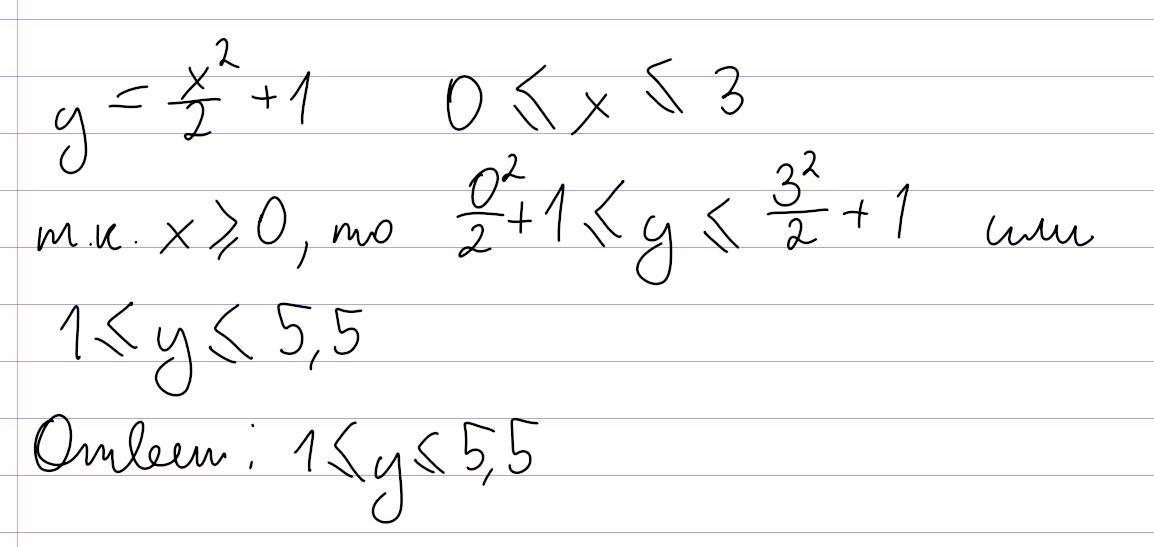 y = x²/2 + 1    0 ⩽ x ⩽ 3
т.к. x ⩾ 0, то 0²/2 + 1 ⩽ y ⩽ 3²/2 + 1 или
1 ⩽ y ⩽ 5,5
Ответ: 1 ⩽ y ⩽ 5,5